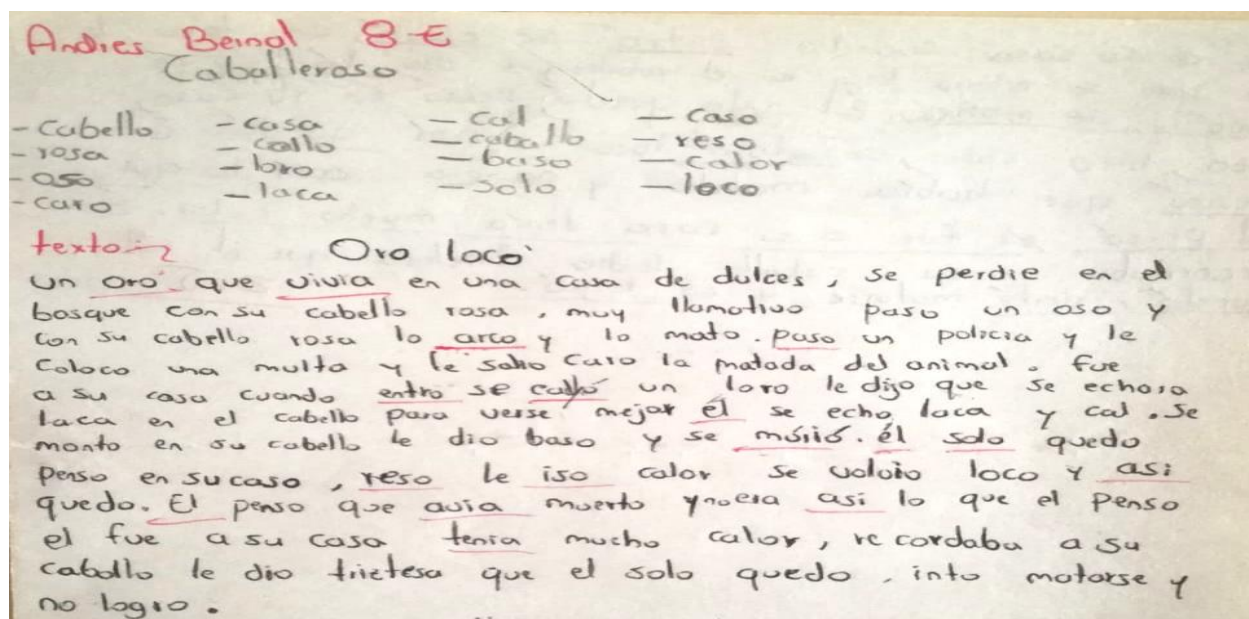 Andres Bernal 8-E
Caballeroso
- Cabello - casa - Cal - caso
- rosa - callo - caballo - reso
- oso - loro - baso - calor
- caro - laca - solo - loco
texto:
Oro loco
un oro que vivia en una casa de dulces, se perdie en el
bosque con su cabello rosa, muy llamativo paso un oso y
con su cabello rosa lo arco y lo mato. paso un policia y le
coloco una multa y le salio caro la matada del animal. fue
a su casa cuando entro se callo un loro le dijo que se echara
laca en el cabello para verse mejor él se echo laca y cal. se
monto en su cabello le dio baso y se múrió. él solo quedo
penso en su caso, reso le iso calor se volvio loco y asi
quedo. El penso que avia muerto y no era asi lo que el penso
el fue a su casa tenia mucho calor, recordaba a su
caballo le dio trietesa que el solo quedo, into matarse y
no logro.